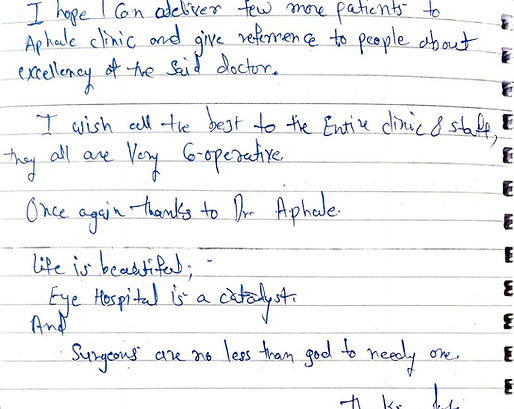 I hope I can deliver few more patients to
Aphale clinic and give refernence to people about
excellency of the said doctor.
I wish all the best to the Entire clinic & staff,
they all are Very Co-operative
Once again thanks to Dr Aphale.
life is beautiful;
Eye Hospital is a catalyst.
And
Surgeons are no less than god to needy one.